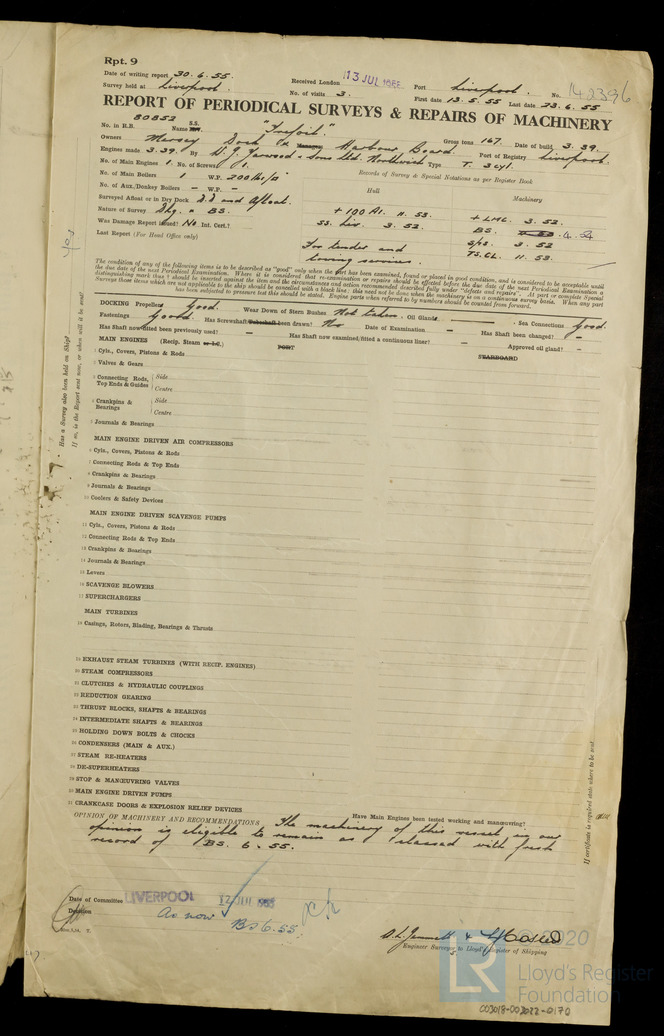 Rpt. 9
Date of writing report 30.6.55.
Received London 13 JUL 1955
Port Liverpool.
No. 142396
Survey held at Liverpool.
No. of visits 3.
First date 13.5.55 Last date 23.6.55
REPORT OF PERIODICAL SURVEYS & REPAIRS OF MACHINERY
No. in R.B. 80852 S.S. Name "Trefoil".
Gross tons 167 Date of build 3.39.
Owners Mersey Dock & Managers Harbour Board. Port of Registry Liverpool.
Engines made 3.39. By W. J. Yarwood & Sons Ltd. Northwich Type T. 3 cyl.
No. of Main Engines 1. No. of Screws 1.
Records of Survey & Special Notations as per Register Book
No. of Main Boilers 1 W.P. 200 lbs/□"
No. of Aux./Donkey Boilers – W.P. –
Hull
Machinery
Surveyed Afloat or in Dry Dock D.D and Afloat.
Nature of Survey Dkg. & BS.
+ 100 A1. 11.53.
+ LMC. 3.52.
Was Damage Report issued? No Int. Cert.?
SS. Liv. 3.52.
BS. 4.54
Last Report (For Head Office only)
3.52
For tender and
TS.CL. 11.53.
towing services.
The condition of any of the following items is to be described as "good" only when the part has been examined, found or placed in good condition, and is considered to be acceptable until
the due date of the next Periodical Examination. Where it is considered that re-examination or repairs should be effected before the due date of the next Periodical Examination a
distinguishing mark thus † should be inserted against the item and the circumstances and action recommended described fully under "defects and repairs". At part or complete Special
Surveys those items which are not applicable to the ship should be cancelled with a black line; this need not be done when the machinery is on a continuous survey basis. When any part
has been subjected to pressure test this should be stated. Engine parts when referred to by numbers should be counted from forward.
DOCKING Propellers Good. Wear Down of Stern Bushes Not taken. Oil Glands Sea Connections Good.
Fastenings Good. Has Screwshaft/Tubeshaft been drawn? No Date of Examination – Has Shaft been changed? –
Has Shaft now fitted been previously used? – Has Shaft now examined/fitted a continuous liner? – Approved oil gland? –
MAIN ENGINES (Recip. Steam or I.C.) PORT STARBOARD
1 Cyls., Covers, Pistons & Rods
2 Valves & Gears
3 Connecting Rods, Top Ends & Guides Side
Centre
4 Crankpins & Bearings Side
Centre
5 Journals & Bearings
MAIN ENGINE DRIVEN AIR COMPRESSORS
6 Cyls., Covers, Pistons & Rods
7 Connecting Rods & Top Ends
8 Crankpins & Bearings
9 Journals & Bearings
10 Coolers & Safety Devices
MAIN ENGINE DRIVEN SCAVENGE PUMPS
11 Cyls., Covers, Pistons & Rods
12 Connecting Rods & Top Ends
13 Crankpins & Bearings
14 Journals & Bearings
15 Levers
16 SCAVENGE BLOWERS
17 SUPERCHARGERS
MAIN TURBINES
18 Casings, Rotors, Blading, Bearings & Thrusts
19 EXHAUST STEAM TURBINES (WITH RECIP. ENGINES)
20 STEAM COMPRESSORS
21 CLUTCHES & HYDRAULIC COUPLINGS
22 REDUCTION GEARING
23 THRUST BLOCKS, SHAFTS & BEARINGS
24 INTERMEDIATE SHAFTS & BEARINGS
25 HOLDING DOWN BOLTS & CHOCKS
26 CONDENSERS (MAIN & AUX.)
27 STEAM RE-HEATERS
28 DE-SUPERHEATERS
29 STOP & MANŒUVRING VALVES
30 MAIN ENGINE DRIVEN PUMPS
31 CRANKCASE DOORS & EXPLOSION RELIEF DEVICES
Have Main Engines been tested working and manœuvring?
OPINION OF MACHINERY AND RECOMMENDATIONS The machinery of this vessel in our
opinion is eligible to remain as classed with fresh
record of BS. 6.55.
Date of Committee LIVERPOOL 12 JUL 1955
Decision As now
BS 6.55
Engineer Surveyors to Lloyd's Register of Shipping
Has a Survey also been held on Ship?
If so, is the Report sent now, or when will it be sent?
If certificate is required state where to be sent
© 2020
LR
Lloyd's Register
Foundation
003018-003022-0170